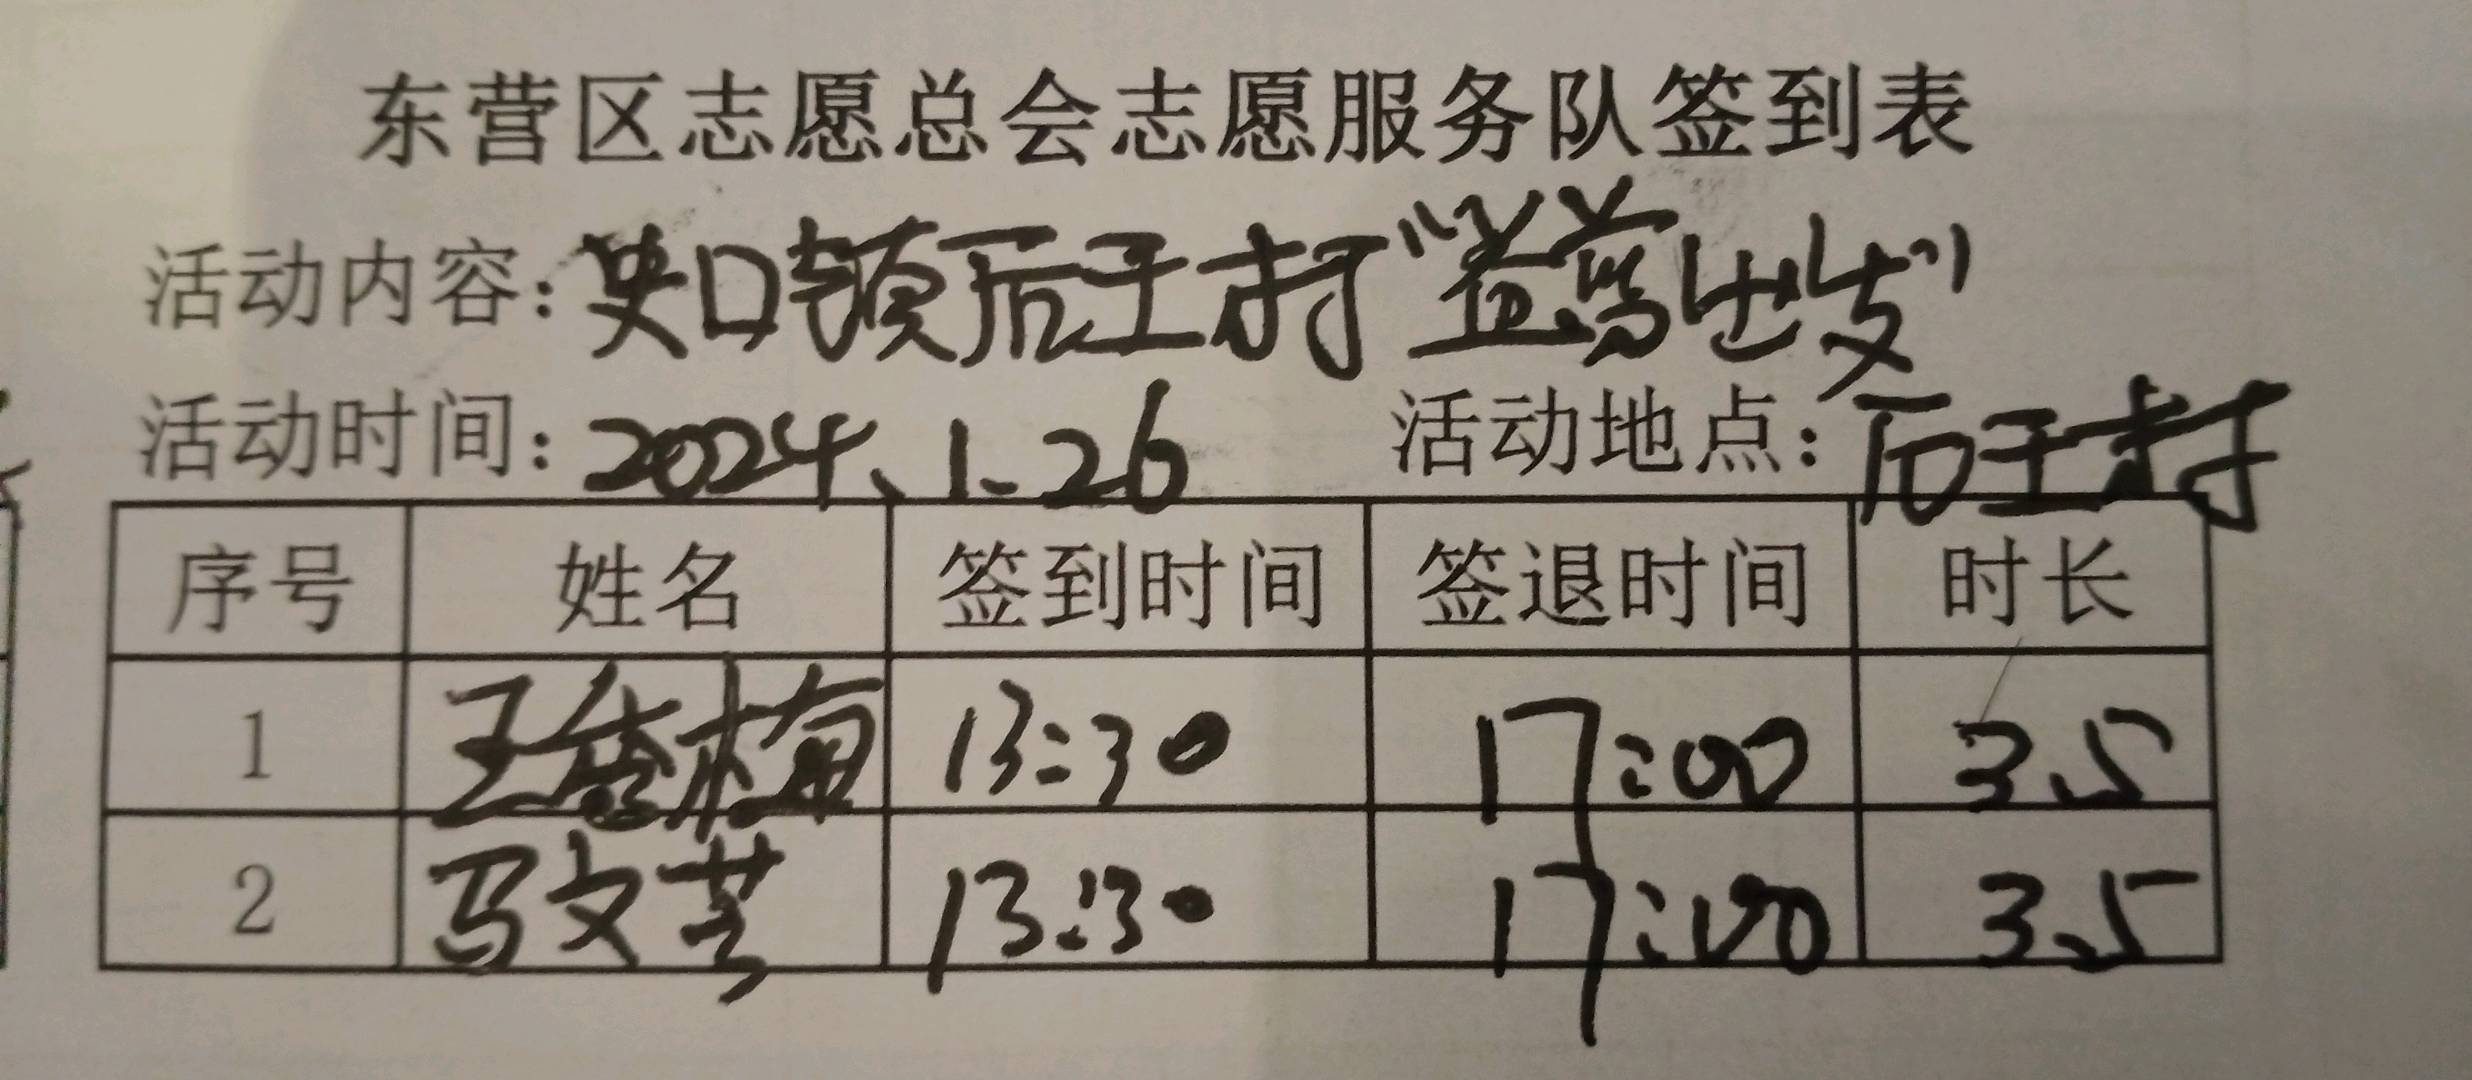 东营区志愿总会志愿服务队签到表
活动内容：史口镇后王村“益篙出发”
活动时间：2024、1、26 活动地点：后王村
序号 姓名 签到时间 签退时间 时长
1 王梅 13:30 17:00 3.5
2 马文芝 13:30 17:00 3.5